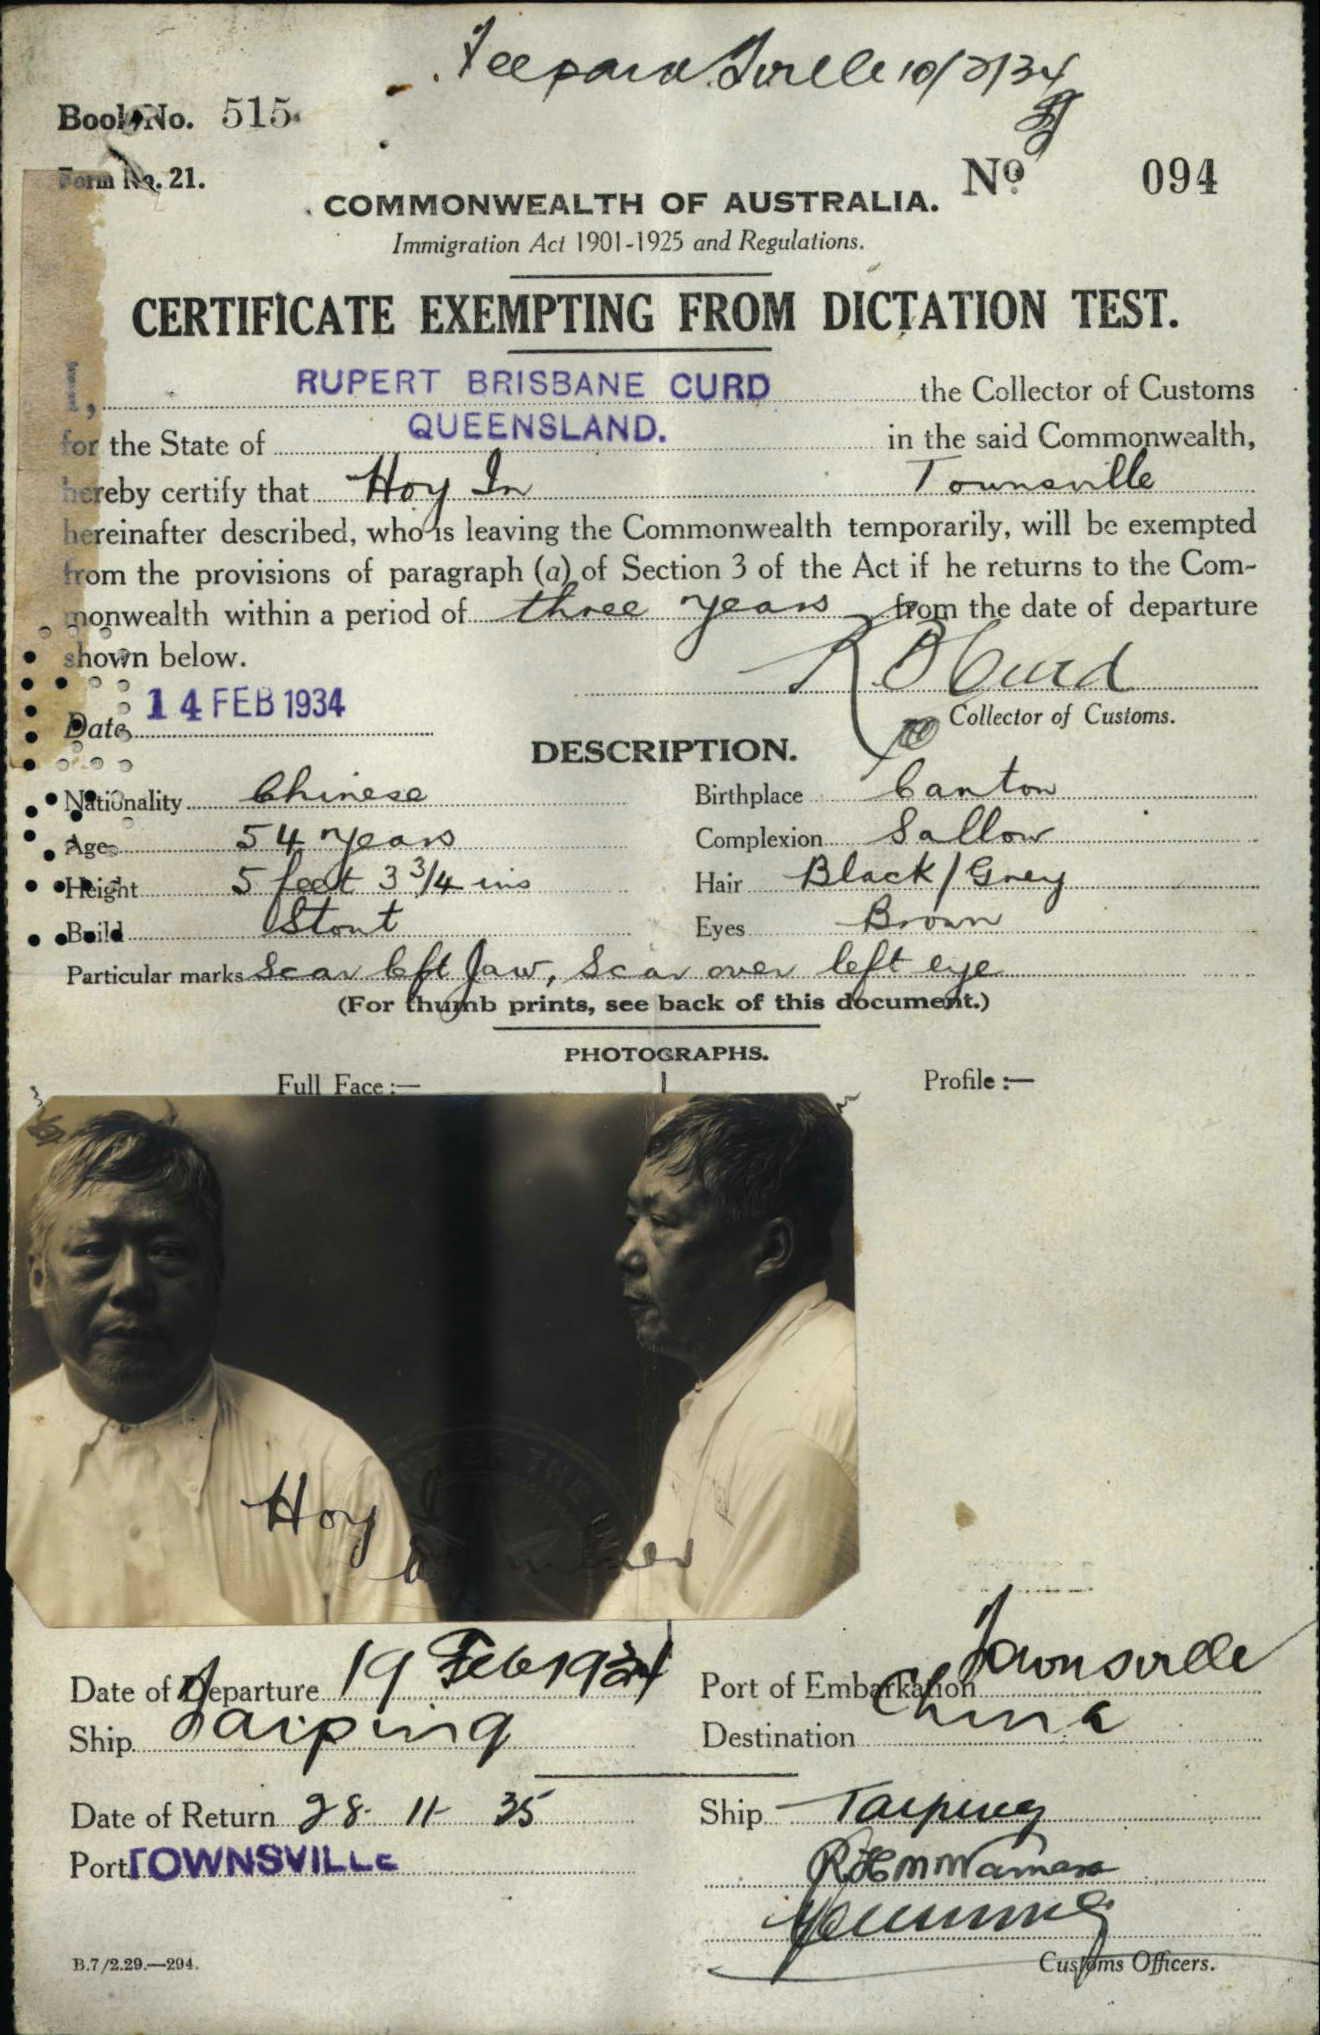 10/2/34
Book No. 515
Form No. 21.
No. 094
COMMONWEALTH OF AUSTRALIA.
Immigration Act 1901-1925 and Regulations.
CERTIFICATE EXEMPTING FROM DICTATION TEST.
I, RUPERT BRISBANE CURD the Collector of Customs
for the State of QUEENSLAND. in the said Commonwealth,
hereby certify that Hoy In Townsville
hereinafter described, who is leaving the Commonwealth temporarily, will be exempted
from the provisions of paragraph (a) of Section 3 of the Act if he returns to the Com-
monwealth within a period of three years from the date of departure
shown below.
R B Curd
Date 14 FEB 1934
Collector of Customs.
DESCRIPTION.
Nationality Chinese Birthplace Canton
Age 54 years Complexion Sallow
Height 5 feet 3 3/4 ins Hair Black/Grey
Build Stout Eyes Brown
Particular marks Scar left Jaw, Scar over left eye
(For thumb prints, see back of this document.)
PHOTOGRAPHS.
Full Face:— Profile:—
Hoy
Date of Departure 19 Feb 1934 Port of Embarkation Townsville
Ship Taiping Destination China
Date of Return 28-11-35 Ship Taiping
Port TOWNSVILLE
Customs Officers.
B.7/2.29.—294.